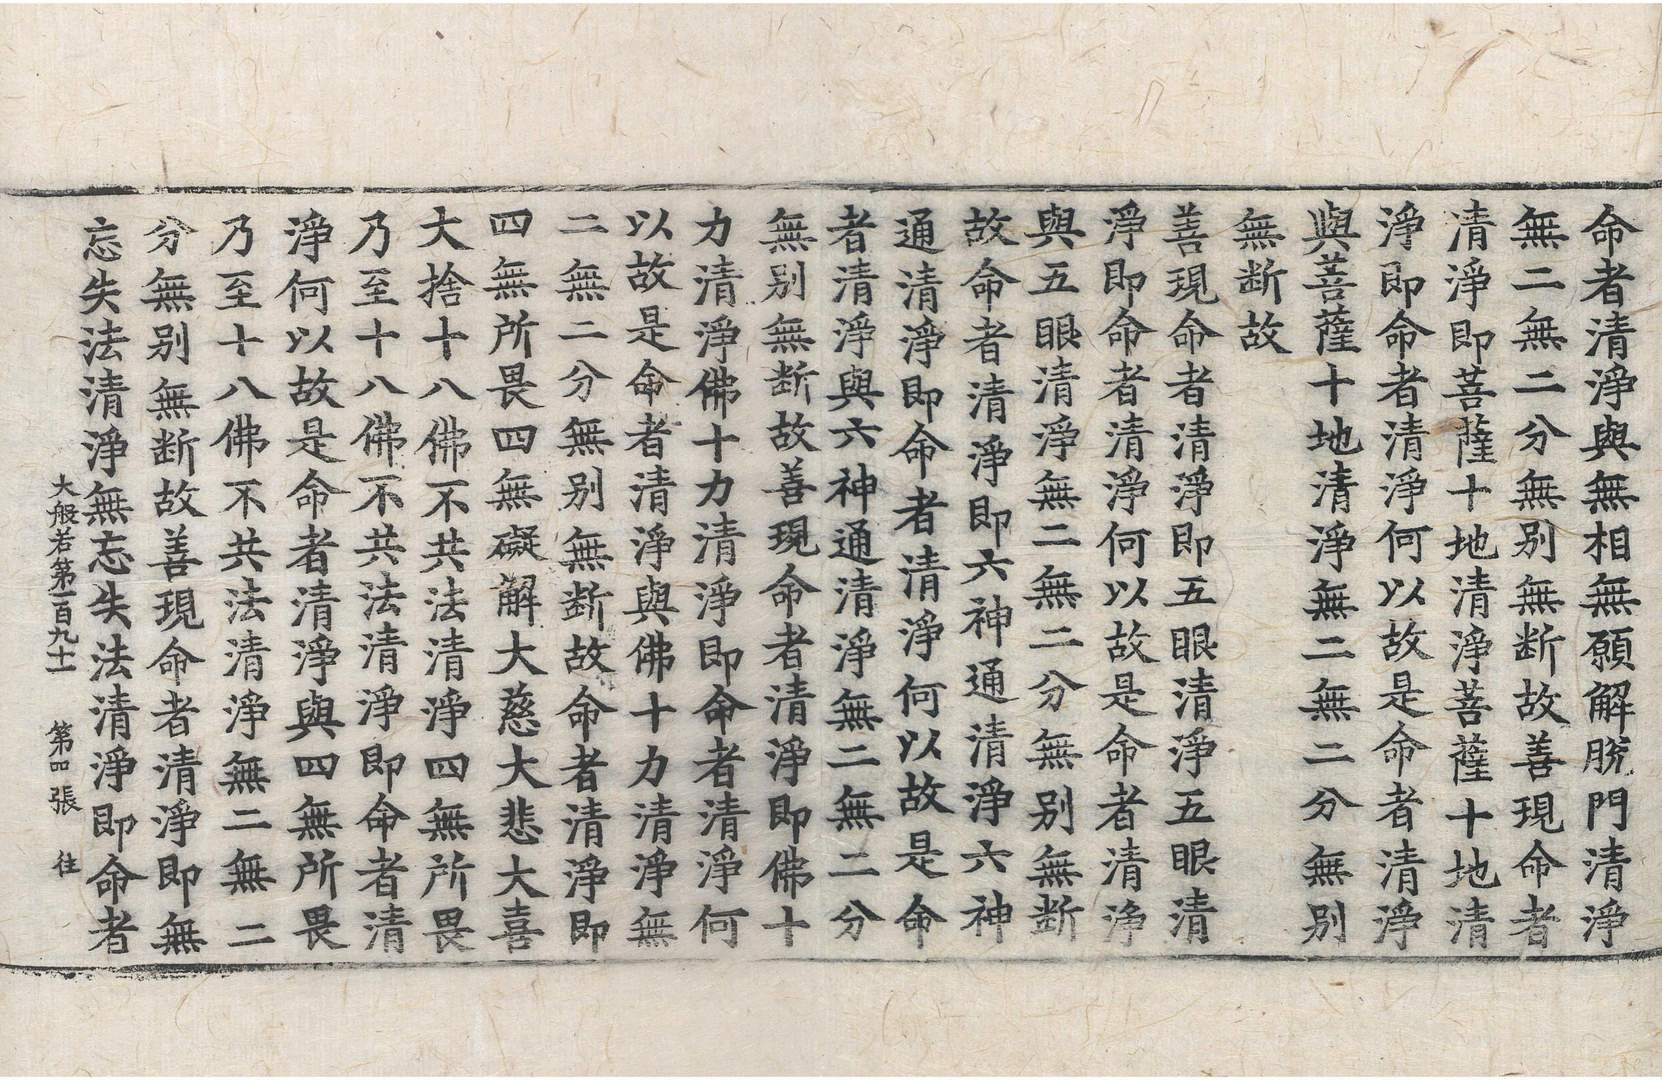 命者清淨與無相無願解脫門清淨
無二無二分無別無断故善現命者
清淨即菩薩十地清淨菩薩十地清
淨即命者清淨何以故是命者清淨
與菩薩十地清淨無二無二分無別
無断故
善現命者清淨即五眼清淨五眼清
淨即命者清淨何以故是命者清淨
與五眼清淨無二無二分無別無断
故命者清淨即六神通清淨六神
通清淨即命者清淨何以故是命
者清淨與六神通清淨無二無二分
無別無断故善現命者清淨即佛十
力清淨佛十力清淨即命者清淨何
以故是命者清淨與佛十力清淨無
二無二分無別無断故命者清淨即
四無所畏四無礙解大慈大悲大喜
大捨十八佛不共法清淨四無所畏
乃至十八佛不共法清淨即命者清
淨何以故是命者清淨與四無所畏
乃至十八佛不共法清淨無二無二
分無別無断故善現命者清淨即無
忘失法清淨無忘失法清淨即命者
大般若第一百九十一 第四張 往